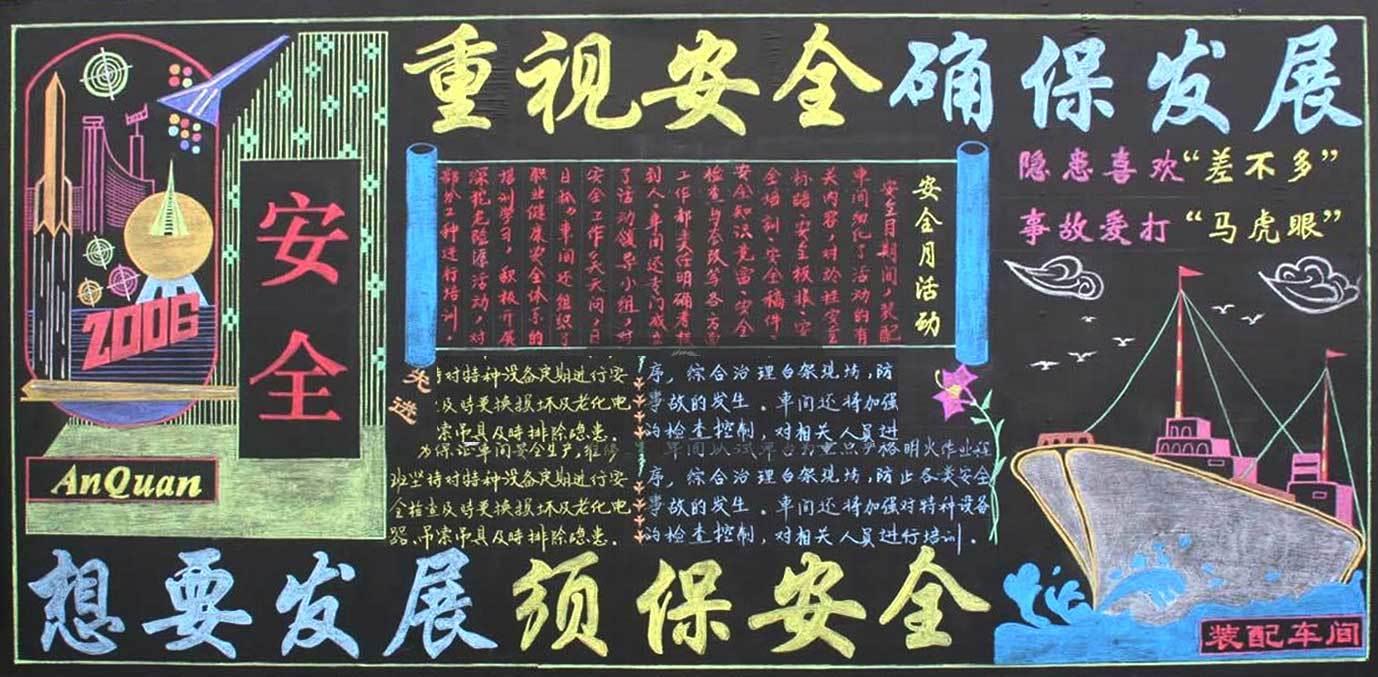 重视安全确保发展
隐患喜欢“差不多”
事故爱打“马虎眼”
安全
2006
AnQuan
安全月活动
安全月期间，装配
车间细化了活动的有
关内容，对於挂安全
标语、安全板报、安
全培训、安全稿件、
安全知识竞赛、安全
检查与整改等各方面
工作都责任明确考核
到人。车间还专门成立
了活动领导小组，对
安全工作
日抓，车间还组织了
职业健康安全体系的
培训学习，积极开展
深挖危险源活动，对
部分工种进行培训。
先进
持对特种设备定期进行安
及时更换损坏及老化电
索吊具及时排除隐患。
为保证车间安全生产，维修
班坚持对特种设备定期进行安
全检查及时更换损坏及老化电
器、吊索吊具及时排除隐患。
序，综合治理台架现场，防
事故的发生。车间还将加强
的检查控制，对相关人员进
车间以试车台为重点严格明火作业程
序，综合治理台架现场，防止各类安全
事故的发生。车间还将加强对特种设备
的检查控制，对相关人员进行培训。
想要发展须保安全
装配车间